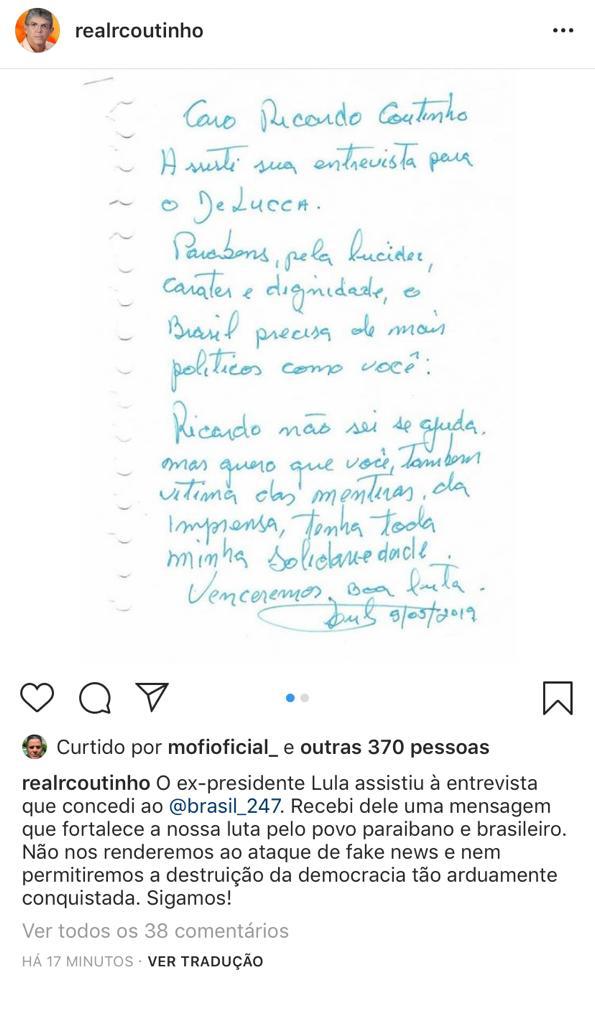 realrcoutinho
Caro Ricardo Coutinho
Assisti sua entrevista para
o De Lucca.
Parabens, pela lucidez,
carater e dignidade, o
Brasil precisa de mais
politicos como você:
Ricardo não sei se ajuda.
mas quero que você, Tambem
vitima das mentiras, da
imprensa, Tenha Toda
minha Solidariedade.
Venceremos, Boa luta.
Lula 9/05/2019
Curtido por mofioficial_ e outras 370 pessoas
realrcoutinho O ex-presidente Lula assistiu à entrevista
que concedi ao @brasil_247. Recebi dele uma mensagem
que fortalece a nossa luta pelo povo paraibano e brasileiro.
Não nos renderemos ao ataque de fake news e nem
permitiremos a destruição da democracia tão arduamente
conquistada. Sigamos!
Ver todos os 38 comentários
HÁ 17 MINUTOS · VER TRADUÇÃO